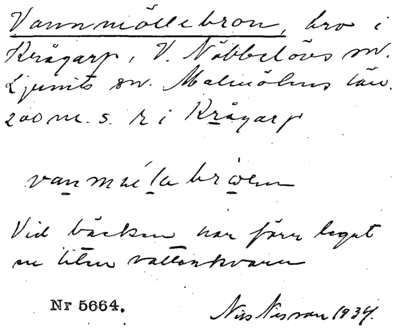 Vannmöllebron, bro i
Krågarp, V. Nöbbelövs sn.
Ljunits hd. Malmöhus län.
200 m. s. r i Krågarp
vanmöllabroen
Vid bäcken har förr legat
en liten vattenkvarn
Nr 5664.
Nils Nilsson 1934.